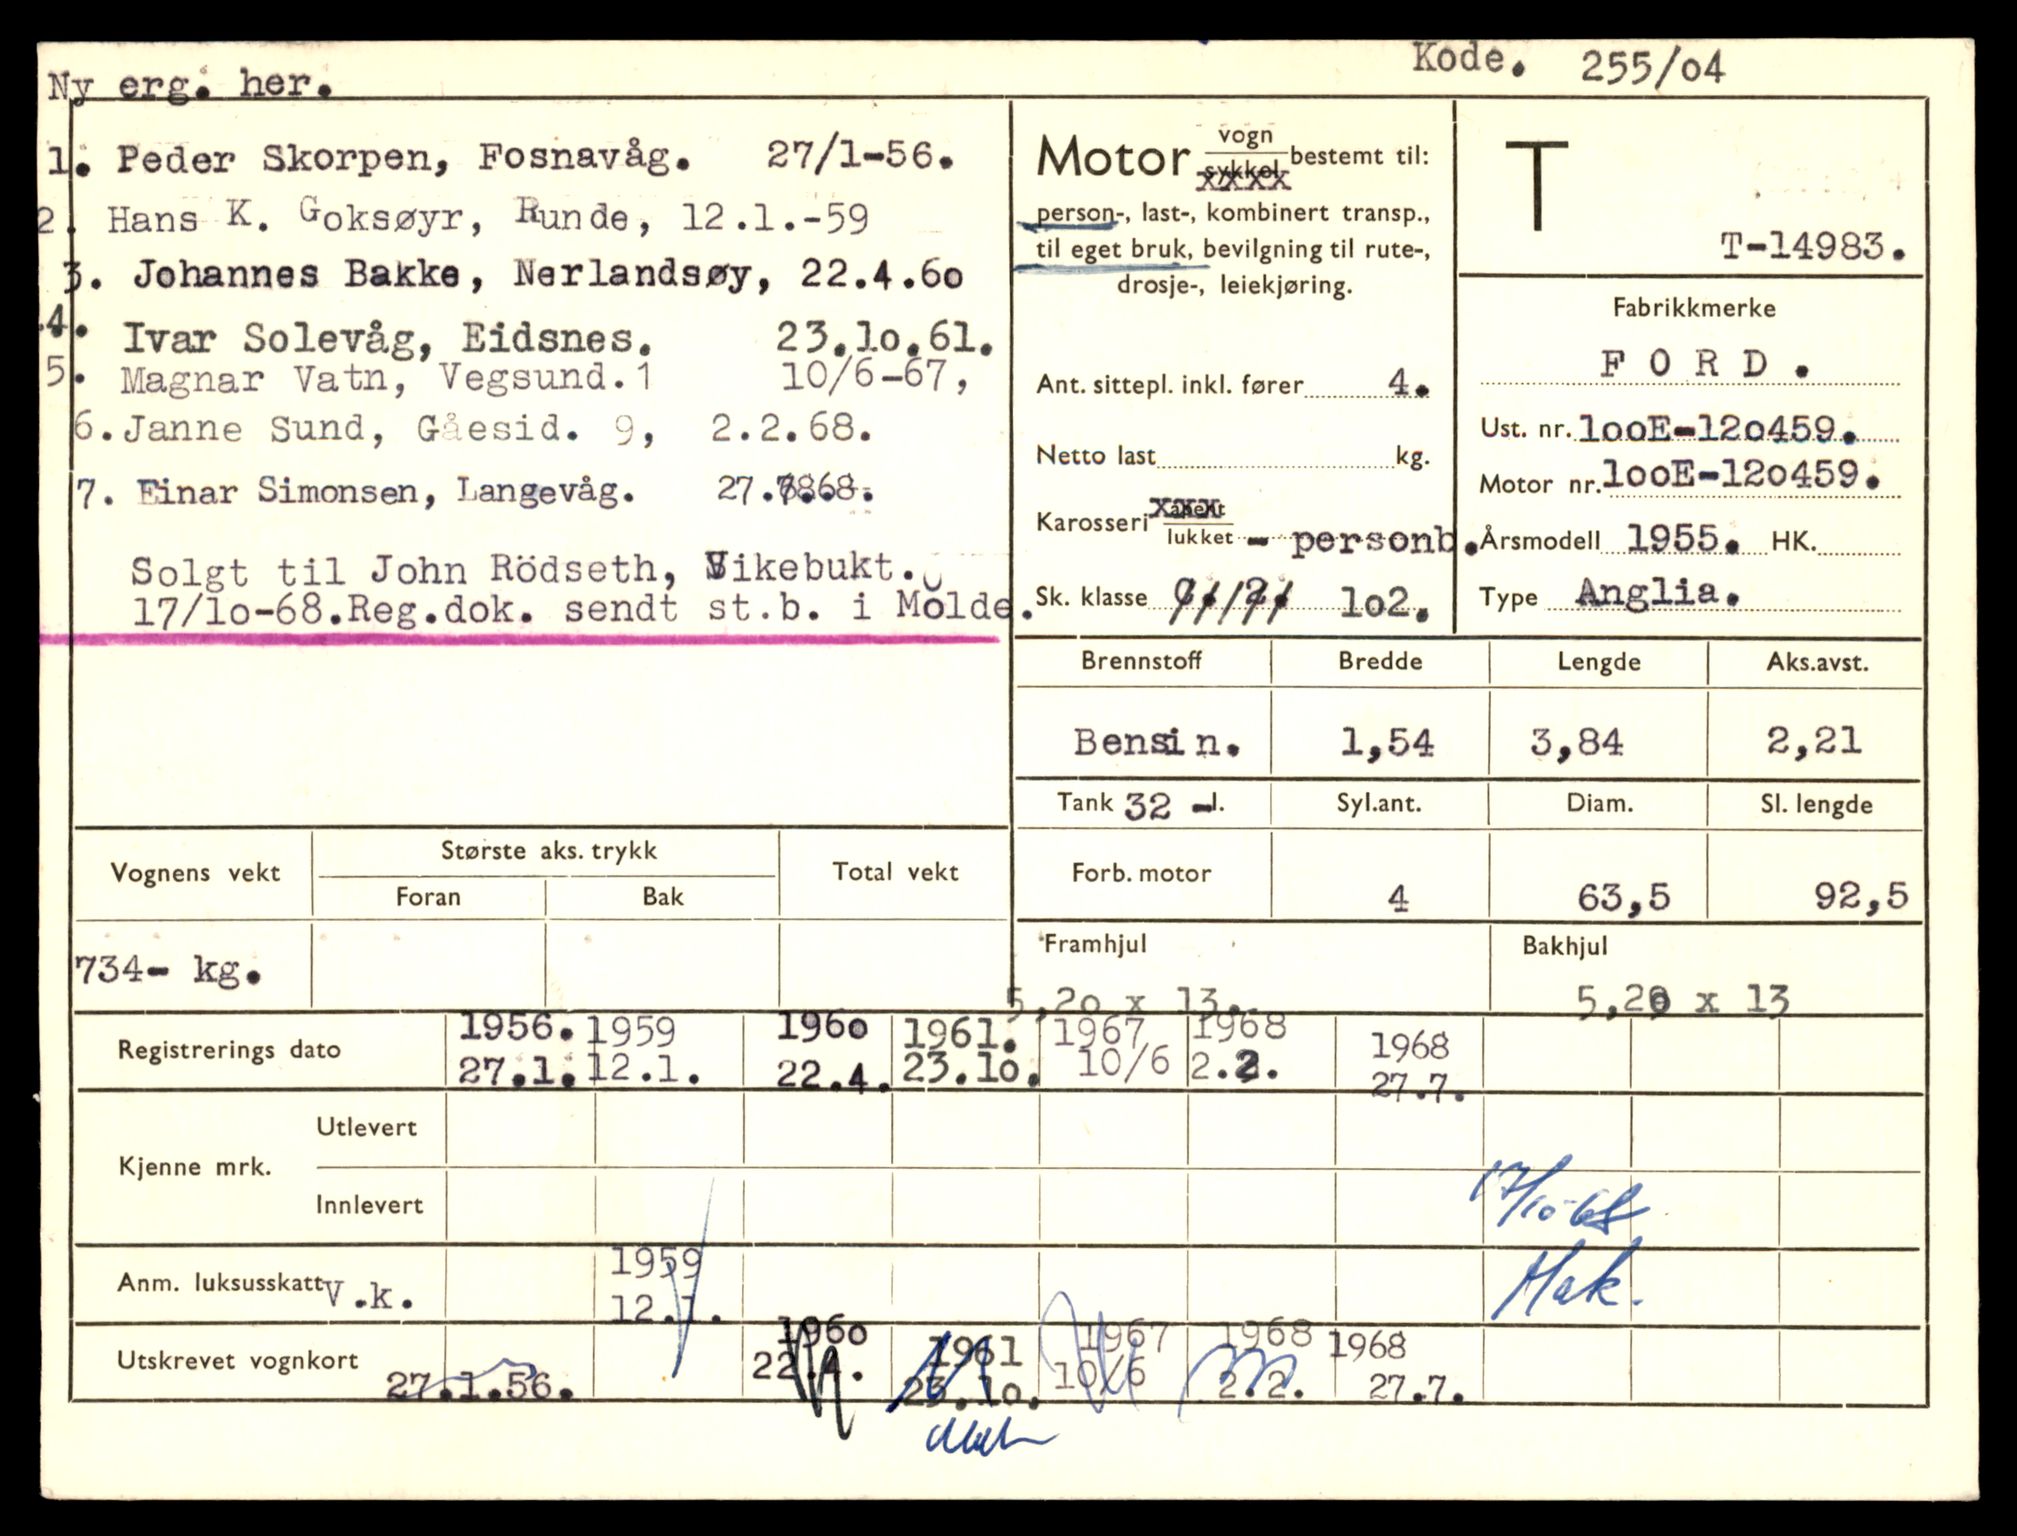 Kode. 255/04
Ny erg. her.
1. Peder Skorpen, Fosnavåg. 27/1-56.
2. Hans K. Goksøyr, Runde, 12.1.-59
3. Johannes Bakke, Nerlandsøy, 22.4.6o
4. Ivar Solevåg, Eidsnes. 23.1o.61.
5. Magnar Vatn, Vegsund.1 10/6-67,
6. Janne Sund, Gåesid. 9, 2.2.68.
7. Einar Simonsen, Langevåg. 27.7.68.
Solgt til John Rödseth, Vikebukt.
17/1o-68.Reg.dok. sendt st.b. i Molde.
Motor vogn
sykkel bestemt til:
person-, last-, kombinert transp.,
til eget bruk, bevilgning til rute-,
drosje-, leiekjøring.
Ant. sittepl. inkl. fører 4.
Netto last kg.
Karosseri åpent
lukket - personb.
Sk. klasse 1o2.
T
T-14983.
Fabrikkmerke
F O R D .
Ust. nr. 1ooE-12o459.
Motor nr. 1ooE-12o459.
Årsmodell 1955. HK.
Type Anglia.
Brennstoff Bredde Lengde Aks.avst.
Bensin. 1,54 3,84 2,21
Tank 32 -l. Syl.ant. Diam. Sl. lengde
Forb. motor 4 63,5 92,5
Framhjul Bakhjul
5,2o x 13. 5,20 x 13
Vognens vekt Største aks. trykk Total vekt
Foran Bak
734- kg.
Registrerings dato 1956. 1959 196o 1961. 1967 1968 1968
27.1. 12.1. 22.4. 23.1o. 10/6 2.2. 27.7.
Kjenne mrk. Utlevert
Innlevert 17/10-68
Anm. luksusskatt V.k. 1959
12.1.
Mak.
Utskrevet vognkort 27.1.56. 196o 1961 1967 1968 1968
22.4. 23.1o. 10/6 2.2. 27.7.